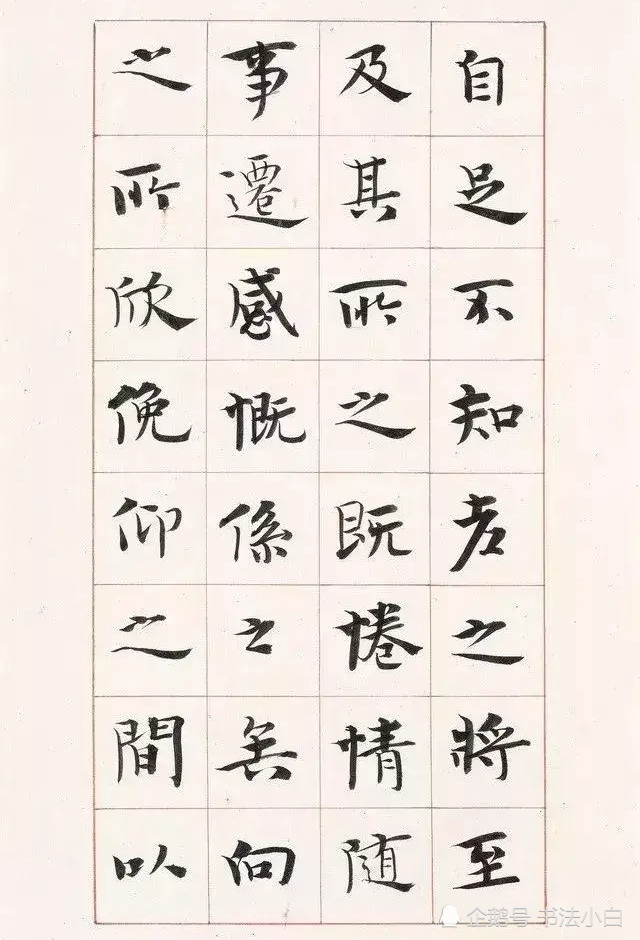 自足不知老之将至
及其所之既惓情随
事遷感慨係之矣向
之所欣俛仰之間以
企鹅号 书法小白